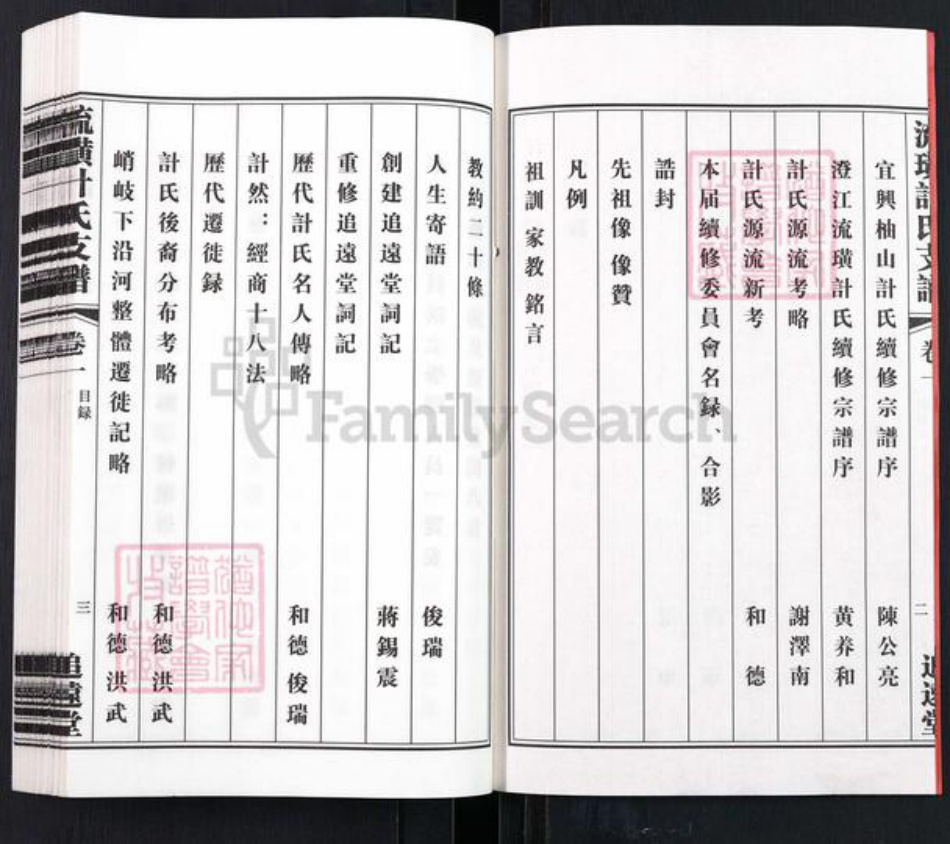 流璜計氏支譜 卷一 二 追遠堂
宜興柚山計氏續修宗譜序 陳公亮
澄江流璜計氏續修宗譜序 黄养和
計氏源流考略 謝澤南
計氏源流新考 和德
本届續修委員會名録、合影
誥封
先祖像像贊
凡例
祖訓 家教 銘言
教約二十條
人生寄語 俊瑞
創建追遠堂詞記 蔣錫震
重修追遠堂詞記
歷代計氏名人傳略 和德 俊瑞
計然：經商十八法
歷代遷徙録
計氏後裔分布考略 和德 洪武
峭岐下沿河整體遷徙記略 和德 洪武
流璜計氏支譜 卷一 目録 三 追遠堂
FamilySearch